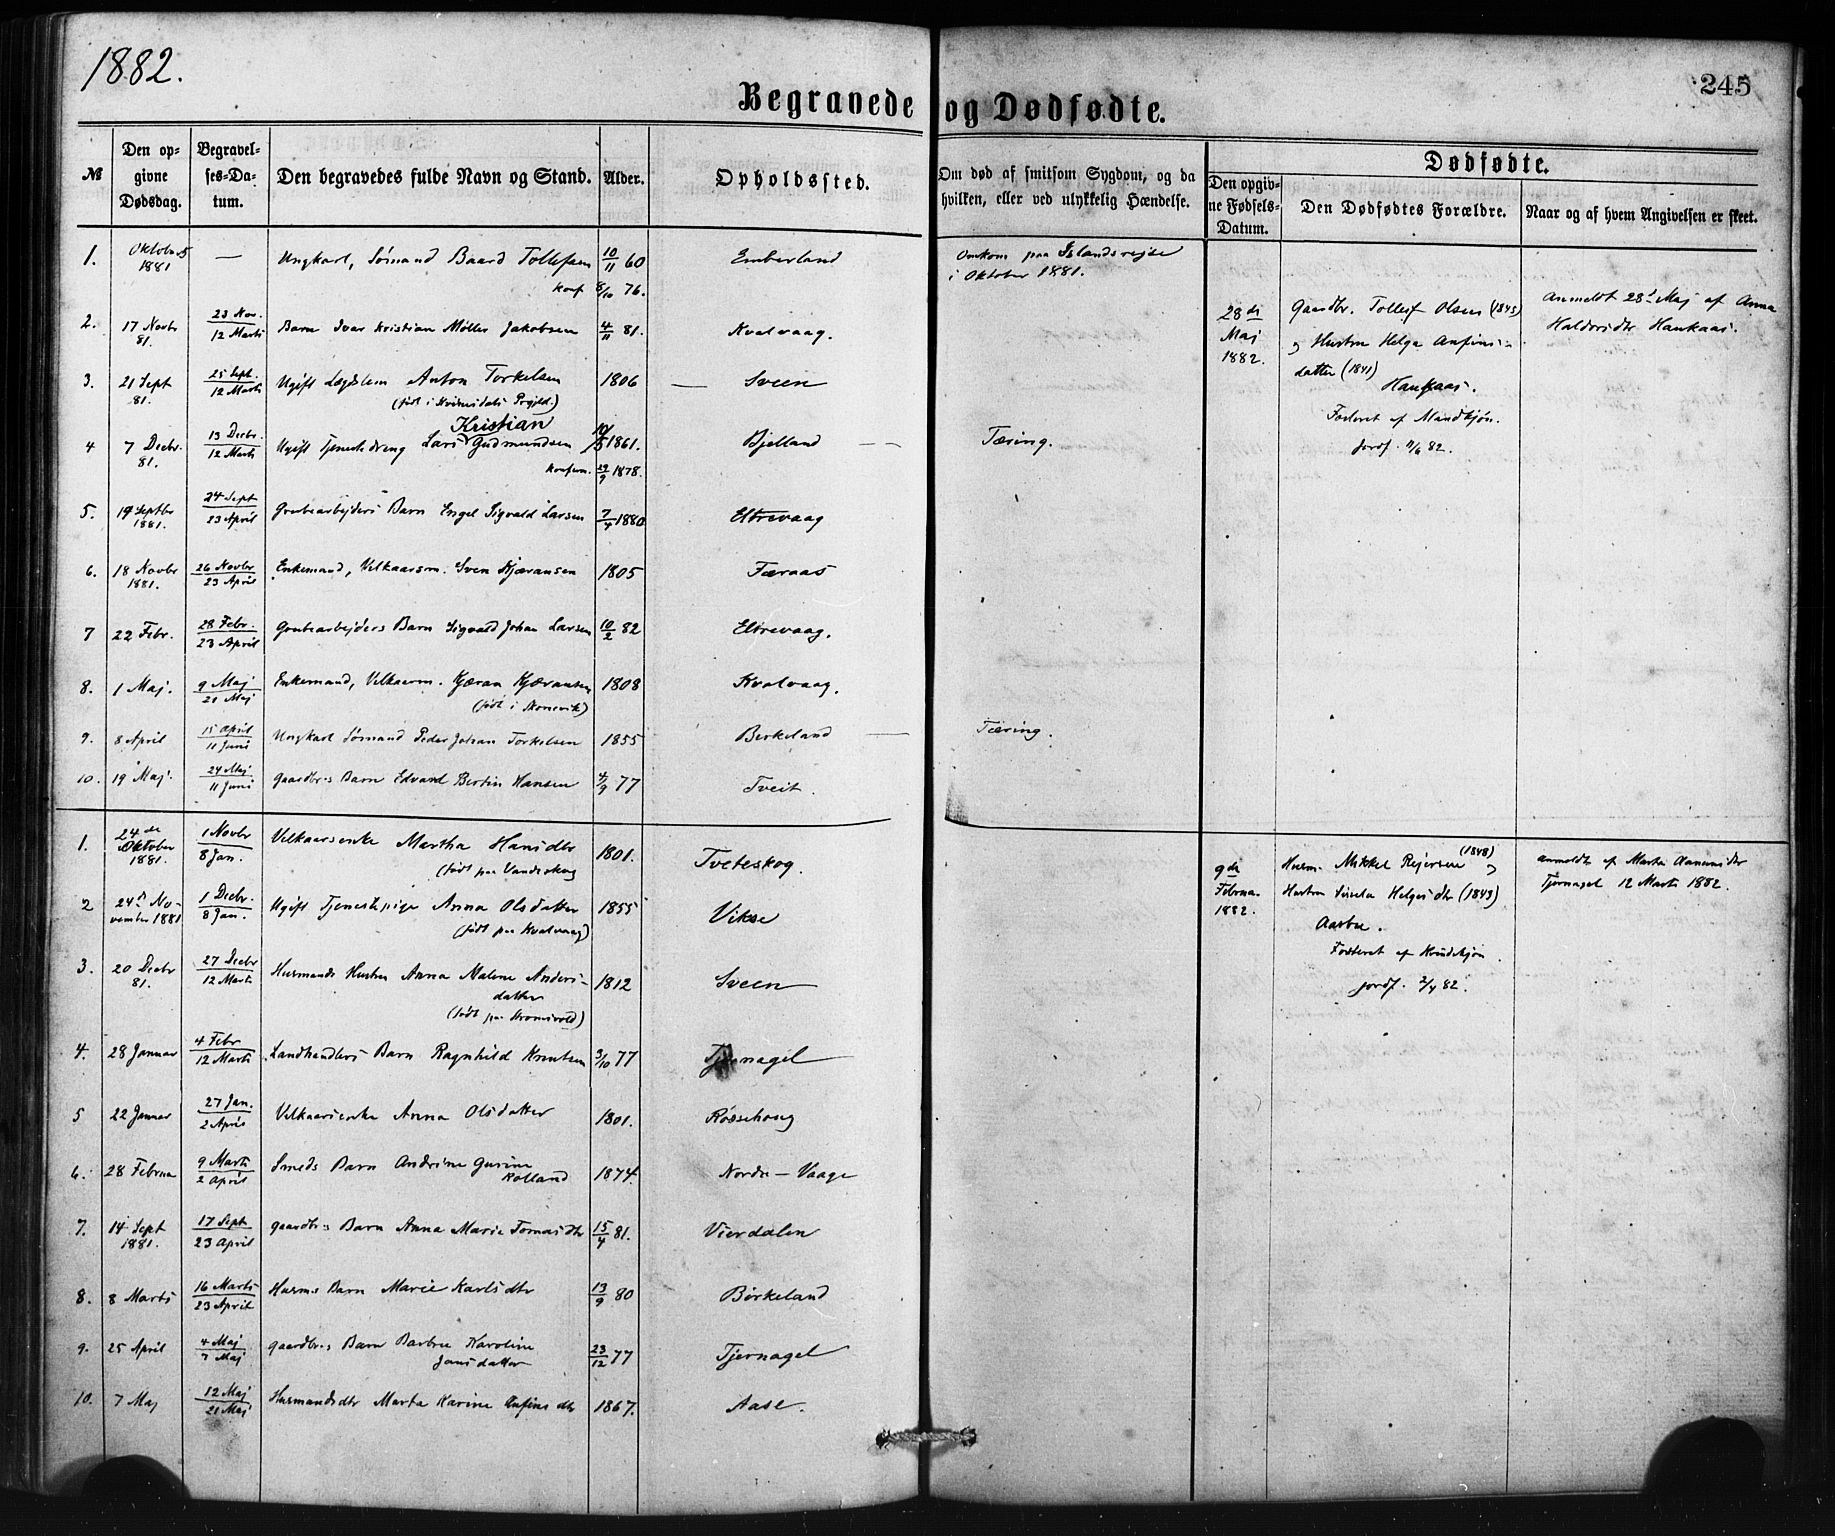 1882.
245
Begravede og Dødfødte.
№
Den opgivne Dødsdag.
Begravelses-Datum.
Den begravedes fulde Navn og Stand.
Alder.
Opholdssted.
Om død af smitsom Sygdom, og da hvilken, eller ved ulykkelig Hændelse.
Dødfødte.
Den opgivne Fødsels-Datum.
Den Dødfødtes Forældre.
Naar og af hvem Angivelsen er skeet.
1. Oktober 1881 — Ungkarl, Sømand Baard Tollefsen 10/11 60 Emberland Omkom paa Islandsrejse
konf 8/10 76. i Oktober 1881.
2. 17 Novbr 81. 23 Nov. 12 Marts Barn Ivar Kristian Møller Jakobsen 4/11 81. Kvalvaag.
28de Maj 1882. Gaardbr. Tollef Olsen (1843)
Hustru Helga Anfins-
datter (1841)
Haukaas.
Fosteret af Mandkjøn.
Jordf. 11/6 82.
Anmeldt 28d Maj af Anna
Haldorsdtr Haukaas.
3. 21 Sept 81. 25 Sept. 12 Marts Ugift Lægdslem Anton Torkelsen 1806 — Sveen
(født i Prgjld.)
4 7 Decbr. 81. 13 Decbr. 12 Marts Ugift Tjenestedreng Lars Kristian Gudmundsen 1861. Bjelland — Tæring.
konfirm. 29/9 1878.
5. 19 Septbr 1881. 24 Sept 23 April Grubearbejders Barn Engel Sigvald Larsen 7/4 1880 Eltrevaag
6. 18 Novbr 1881. 26 Novbr 23 April Enkemand, Velkaarsm. Sven Kjæransen 1805 Færaas
7 22 Febr. 28 Febr. 23 April Grubearbejders Barn Sigvald Johan Larsen 10/2 82 Eltrevaag.
8. 1 Maj. 9 Maj 21 Maj Enkemand, Velkaarm. Kjæran Kjæransen 1808 Kvalvaag.
(født i Skonevik)
9. 8 April 15 April 11 Juni Ungkarl Sømand Peder Johan Torkelsen 1855 Birkeland — Tæring.
10. 19 Maj. 24 Maj 11 Juni Gaardbr.s Barn Edvard Bertin Hansen 4/9 77 Tveit.
1. 24de Oktober 1881. 1 Novbr 8 Jan. Velkaarsenke Martha Hansdtr 1801. Tveteskog.
(født paa Vandaskog
9de Februa. 1882. Husm. Mikkel Rejersen (1848)
Hustru Helgesdtr (1843)
Aasbu.
Fosteret af Kvindekjøn.
Jordf. 2/4 82.
anmeldt af Marta
Tjernagel 12 Marts 1882.
2 24d November 1881 1 Decbr. 8 Jan. Ugift Tjenestepige Anna Olsdatter 1855 Vikse
(født paa Kvalvaag)
3. 20 Decbr 81. 27 Decbr 12 Marts Husmands Hustru Anna Malene Anders-
datter 1812 Sveen
(født paa)
4. 28 Januar 4 Febr 12 Marts Landhandlers Barn Ragnhild Knutsen 3/10 77 Tjernagel
5 22 Januar 27 Jan. 2 April Velkaarsenke Anna Olsdatter 1801. Røssehaug
6. 28 Februa 9 Marts 2 April Smeds Barn Andrine Gurine
Rolland 1874. Nordre-Vaage
7. 14 Sept 1881. 17 Sept 23 April Gaardbr.s Barn Anna Marie Tomasdtr 15/4 81. Vierdalen
8. 8 Marts 16 Marts 23 April Husm.s Barn Marie Karlsdtr 13/9 80 Børkeland
9. 25 April 4 Maj 7 Maj Gaardbr.s Barn Barbru Karoline
Jansdatter 23/12 77 Tjernagel
10. 7 Maj 12 Maj 21 Maj Husmandsdtr Marta Karine Anfinsdtr 1867. Aase.